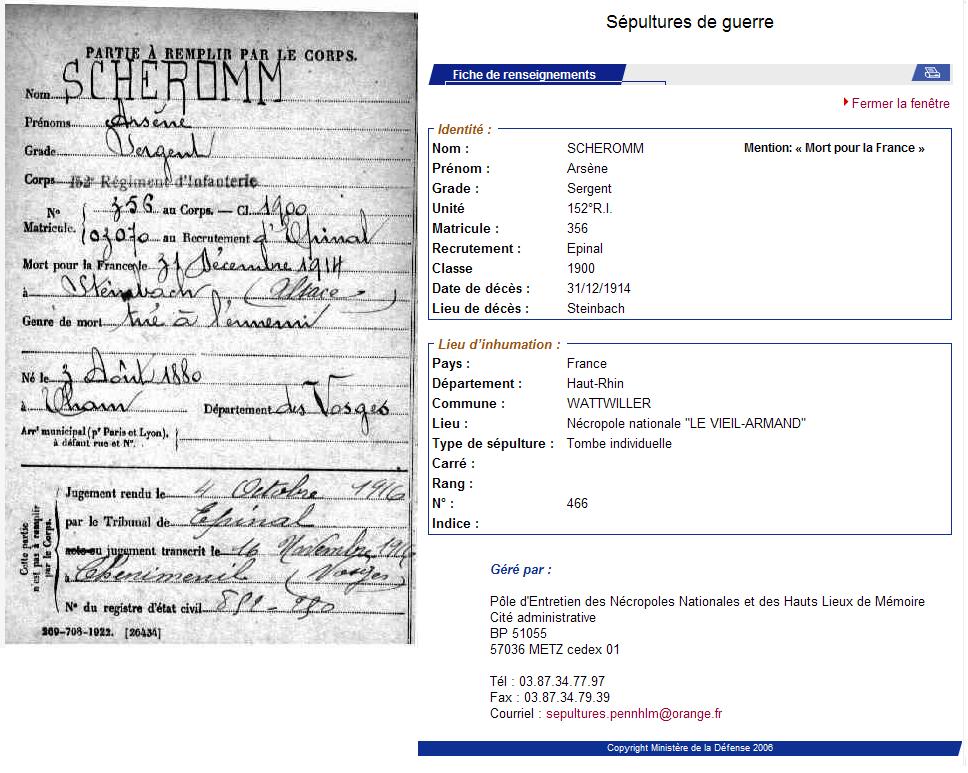 PARTIE À REMPLIR PAR LE CORPS.
Nom SCHEROMM
Prénoms Arsène
Grade Sergent
Corps 152e Régiment d'Infanterie
N° 356 au Corps. — Cl. 1900
Matricule. 03070 au Recrutement d'Epinal
Mort pour la France le 31 Décembre 1914
à Steinbach (Alsace)
Genre de mort tué à l'ennemi
Né le 3 Août 1880
à Cham Département des Vosges
Arrt municipal (pr Paris et Lyon),
à défaut rue et N°.
Cette partie
n'est pas à remplir
par le Corps.
Jugement rendu le 4 Octobre 1916
par le Tribunal de Epinal
acte ou jugement transcrit le 16 Novembre 1916
à Cheniménil (Vosges)
N° du registre d'état civil
269-708-1922. [26434]
Sépultures de guerre
Fiche de renseignements
Fermer la fenêtre
Identité :
Nom : SCHEROMM Mention: « Mort pour la France »
Prénom : Arsène
Grade : Sergent
Unité 152°R.I.
Matricule : 356
Recrutement : Epinal
Classe 1900
Date de décès : 31/12/1914
Lieu de décès : Steinbach
Lieu d'inhumation :
Pays : France
Département : Haut-Rhin
Commune : WATTWILLER
Lieu : Nécropole nationale "LE VIEIL-ARMAND"
Type de sépulture : Tombe individuelle
Carré :
Rang :
N° : 466
Indice :
Géré par :
Pôle d'Entretien des Nécropoles Nationales et des Hauts Lieux de Mémoire
Cité administrative
BP 51055
57036 METZ cedex 01
Tél : 03.87.34.77.97
Fax : 03.87.34.79.39
Courriel : sepultures.pennhlm@orange.fr
Copyright Ministère de la Défense 2006